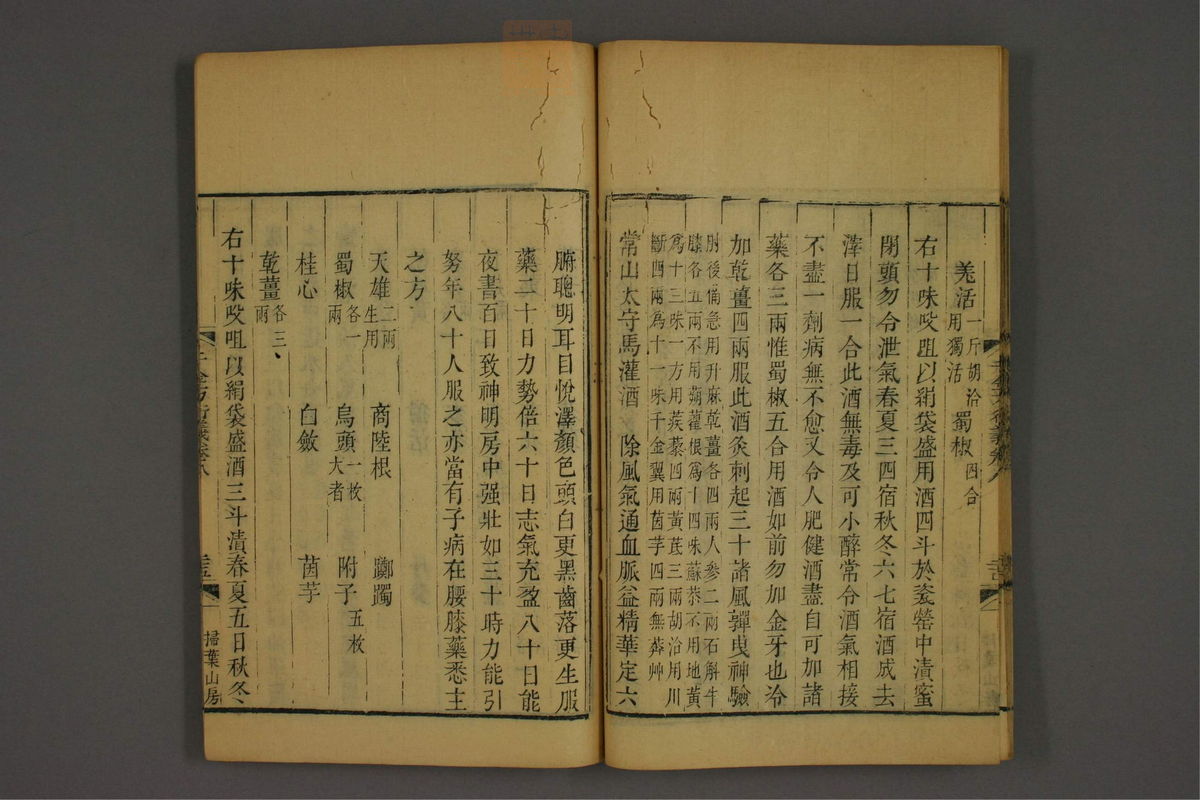 羗活一斤胡洽用獨活 蜀椒四合
右十味㕮咀以絹袋盛用酒四斗於瓷罌中漬蜜
閉頭勿令泄氣春夏三四宿秋冬六七宿酒成去
滓日服一合此酒無毒及可小醉常令酒氣相接
不盡一劑病無不愈又令人肥健酒盡自可加諸
藥各三兩惟蜀椒五合用酒如前勿加金牙也冷
加乾薑四兩服此酒灸刺起三十諸風嚲曳神驗
肘後備急用升麻乾薑各四兩人參二兩石斛牛
膝各五兩不用蒴藋根為十四味蘇恭不用地黃
為十三味一方用蒺藜四兩黃芪三兩胡洽用川
斷四兩為十一味千金翼用茵芋四兩無莽艸
常山太守馬灌酒 除風氣通血脈益精華定六
腑聰明耳目悅澤顏色頭白更黑齒落更生服
藥二十日力勢倍六十日志氣充盈八十日能
夜書百日致神明房中强壯如三十時力能引
努年八十人服之亦當有子病在腰膝藥悉主
之方
天雄二兩生用 商陸根 躑躅
蜀椒各一兩 烏頭一枚大者 附子五枚
桂心 白斂 茵芋
乾薑各三兩
右十味㕮咀以絹袋盛酒三斗漬春夏五日秋冬
千金方衍義卷八
掃葉山房